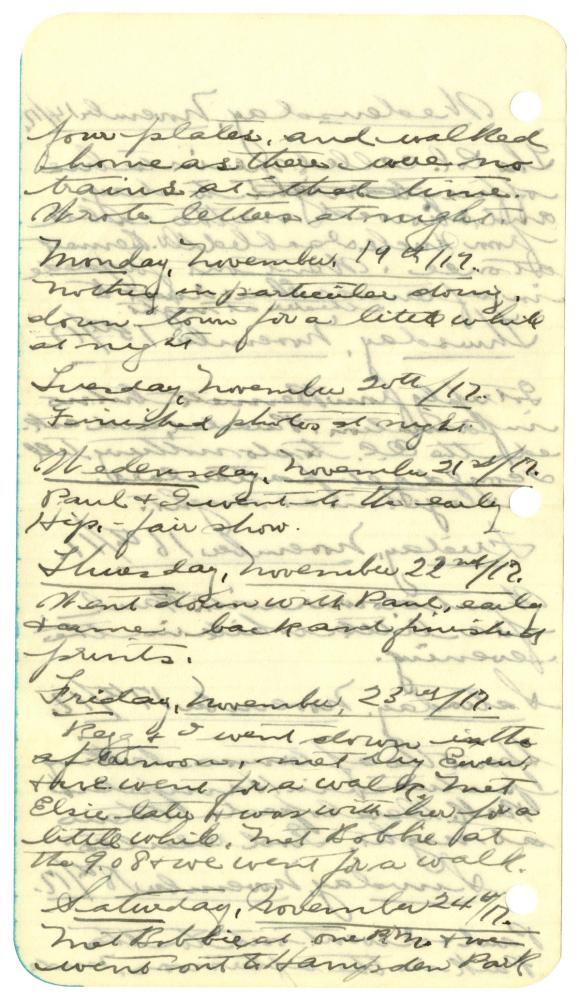 four plates, and walked
home as there were no
trains at that time.
Wrote letters at night.
Monday, November, 19th/17.
Nothing in particular doing,
down town for a little while
at night
Tuesday, November 20th/17.
Finished photos at night.
Wednesday, November 21st/17.
Paul & I went to the early
Hip. - fair show.
Thursday, November 22nd/17.
Went down with Paul, early
& came back and finished
prints.
Friday, November, 23rd/17
Regg & I went down in the
afternoon, met Ewen,
& we went for a walk. Met
Elsie later & was with her for a
little while. Met Bobbie at
the 9.08 & we went for a walk.
Saturday, November 24th/17.
Met Bobbie at one P.M. & we
went out to Hampden Park